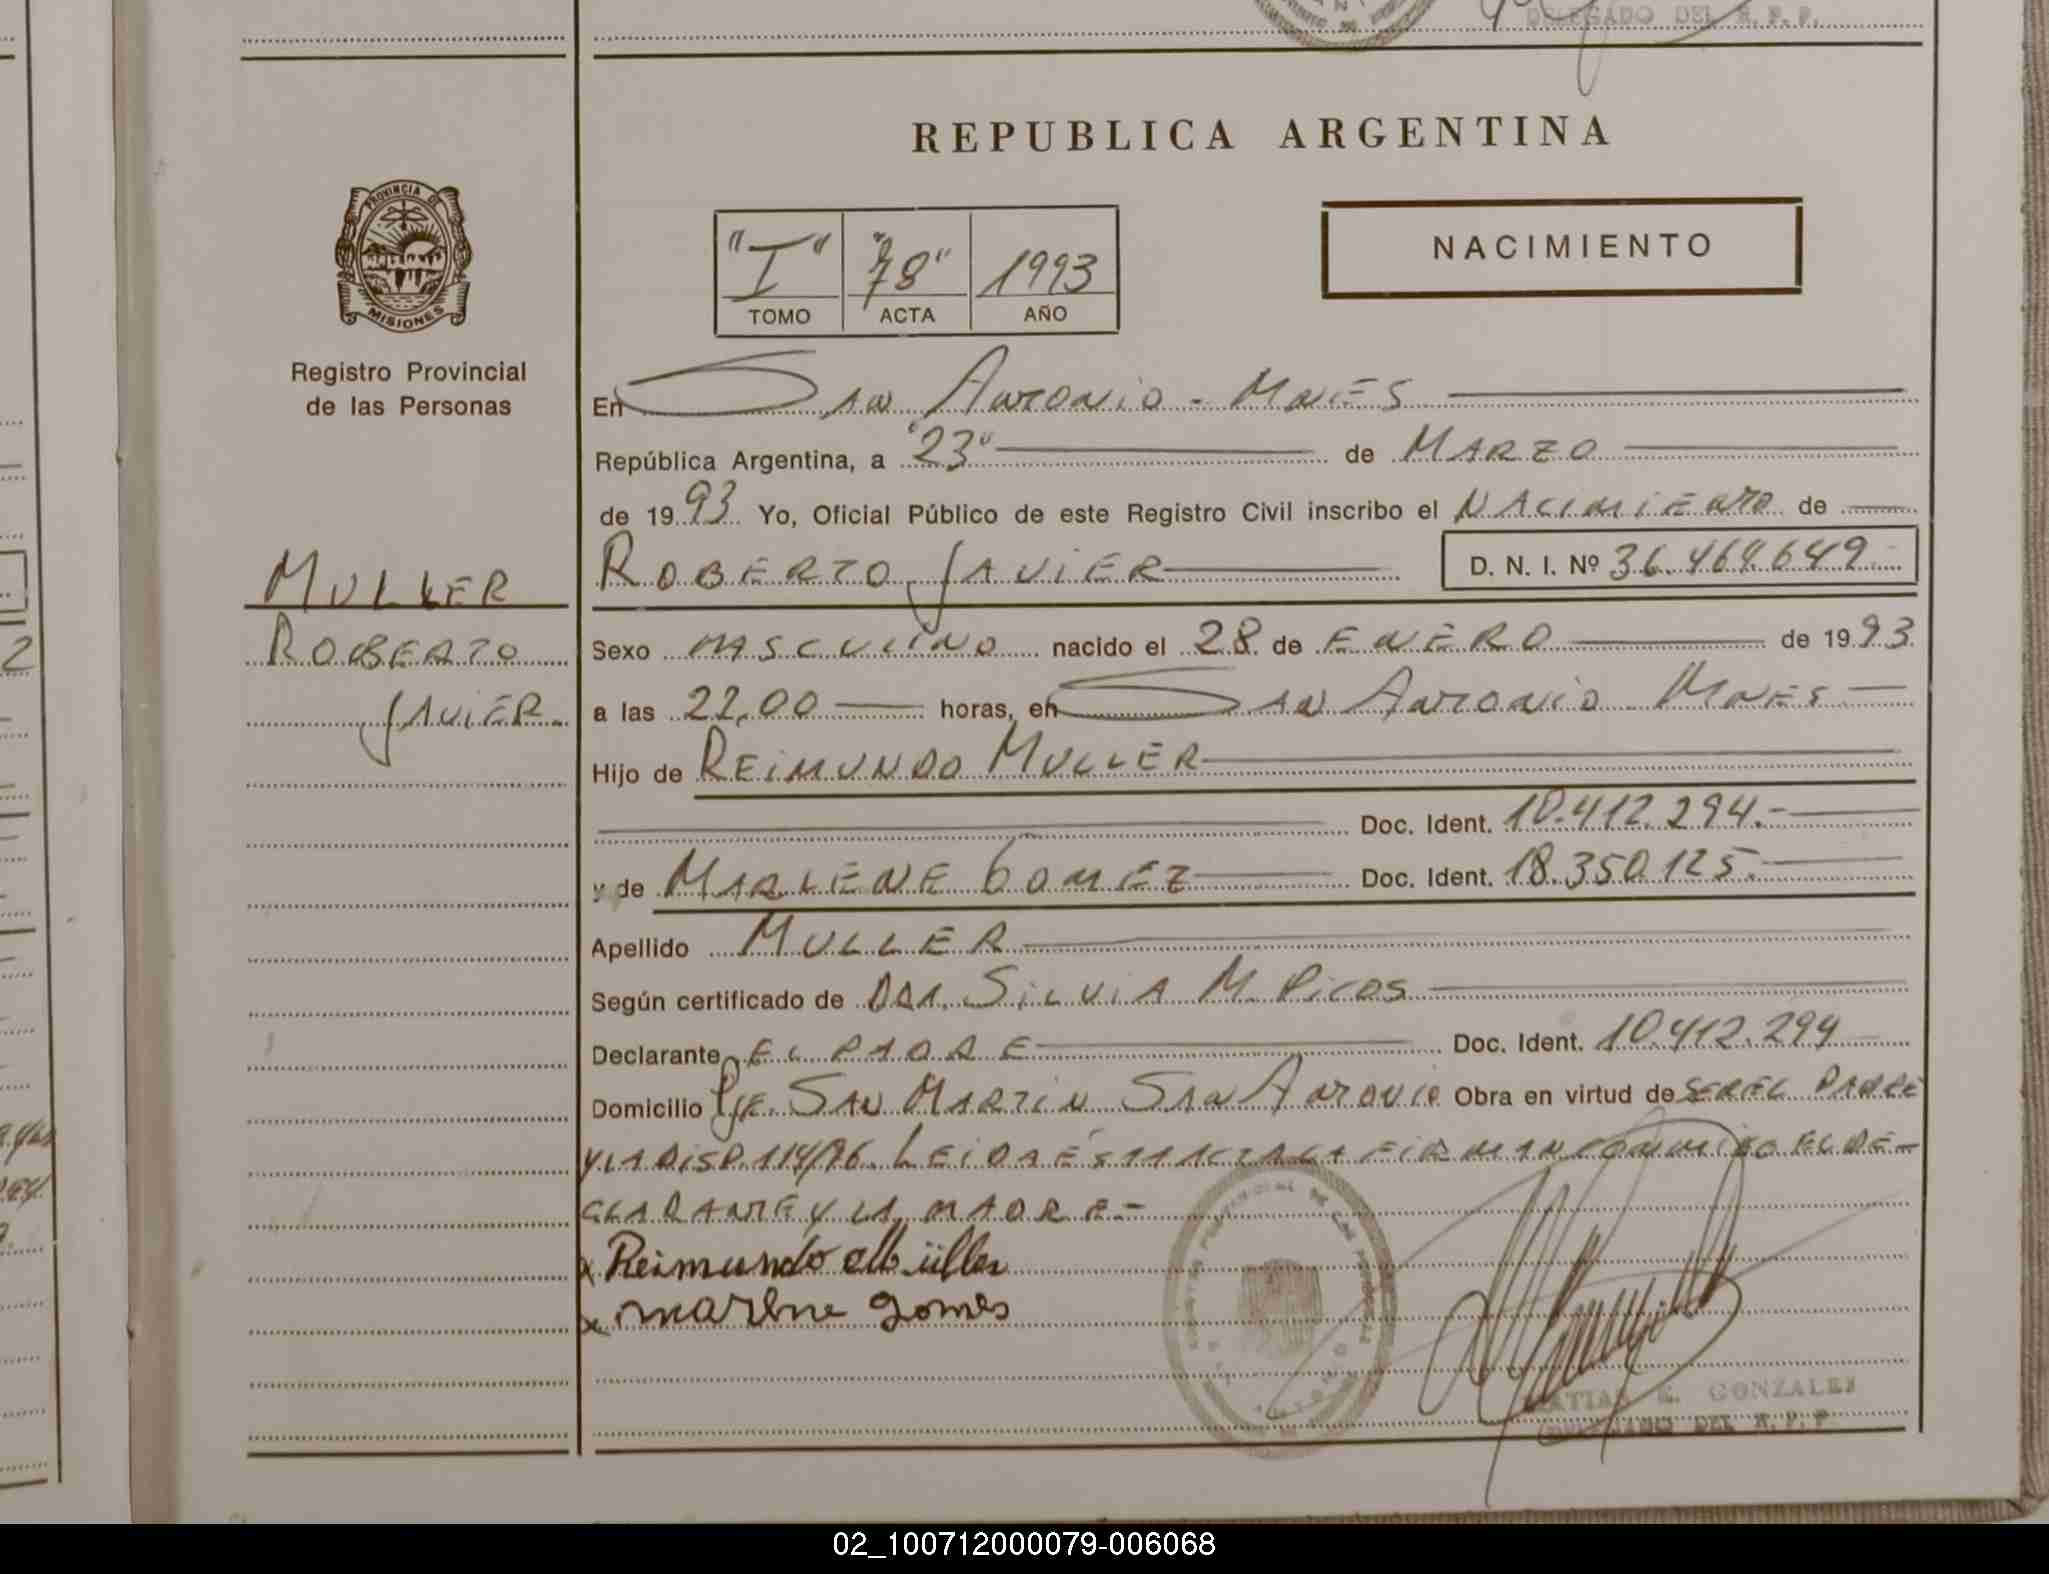 DELEGADO DEL R. P. P.
REPUBLICA ARGENTINA
PROVINCIA DE
MISIONES
Registro Provincial
de las Personas
"I" "78" 1993
TOMO ACTA AÑO
NACIMIENTO
En San Antonio - Mnes
República Argentina, a "23" de MARZO
de 1993 Yo, Oficial Público de este Registro Civil inscribo el NACIMIENTO de
ROBERTO JAVIER D. N. I. Nº 36.464.649.
MULLER
ROBERTO
JAVIER
Sexo MASCULINO nacido el 28 de ENERO de 1993
a las 22,00 horas, en SAN ANTONIO Mnes
Hijo de REIMUNDO MULLER
Doc. Ident. 10.412.294.-
y de MARLENE GOMEZ Doc. Ident. 18.350.125.
Apellido MULLER
Según certificado de DRA. SILVIA M. PICOS
Declarante EL PADRE Doc. Ident. 10.412.294
Domicilio Pje. SAN MARTIN SAN ANTONIO Obra en virtud de SER EL PADRE
Y LA DISP. 114/76. LEIDA ESTA ACTA LA FIRMAN CONMIGO EL DE-
CLARANTE Y LA MADRE.-
x Reimundo Müller
x marlene gomes
MATIAS E. GONZALES
DELEGADO DEL R. P. P.
02_100712000079-006068